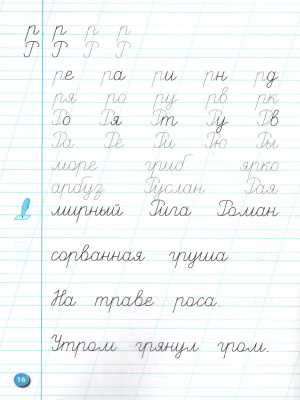 р р р р
Р Р Р Р
ре ра ри рн рд
ря ро ру рв рк
Ро Ря Рт Ру Рв
Ра Ре Ри Рю Ры
море гриб ярко
арбуз Руслан Рая
мирный Рига Роман
сорванная груша
На траве роса.
Утром грянул гром.
16